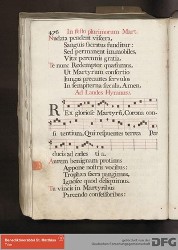 476 In Festo plurimorum Mart.
Nudata pendent viscera,
Sanguis sacratus funditur:
Sed permanent immobiles,
Vitæ perennis gratia.
Te nunc Redemptor quæsumus,
Ut Martyrum consortio
Jungas precantes servulos
In sempiterna sæcula. Amen.
Ad Laudes Hymnus.
Rex gloriose Martyrum, Corona con-
fitentium, Qui respuentes terrea Per
ducis ad cæles tia.
Aurem benignam protinus
Appone nostris vocibus:
Trophæa sacra pangimus,
Ignosce quod deliquimus.
Tu vincis in Martyribus
Parcendo confessoribus:
DFG